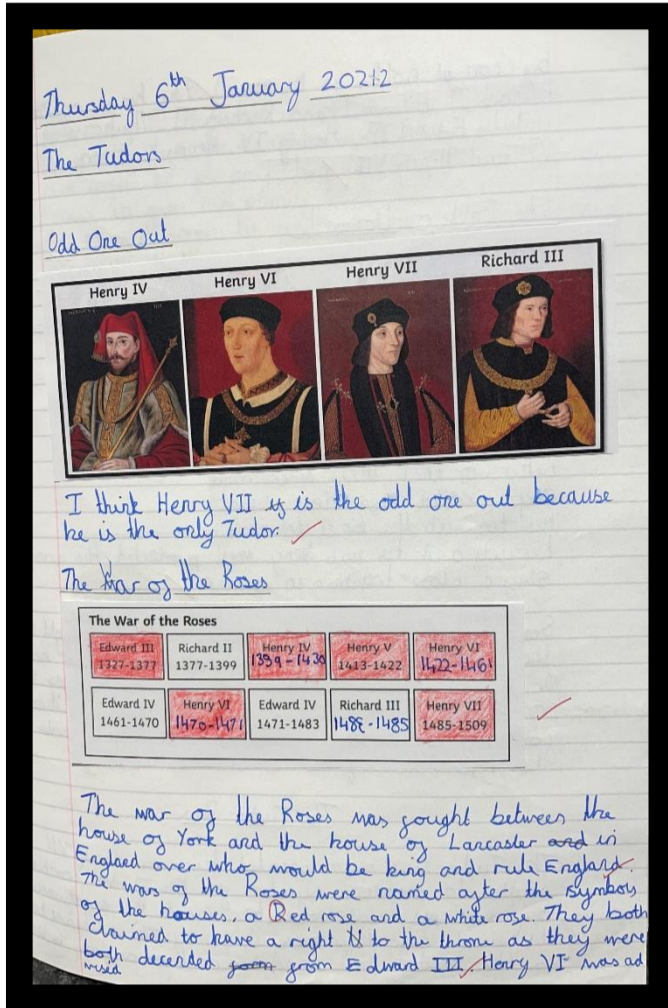 Thursday 6th January 2022
The Tudors
Odd One Out
Henry IV Henry VI Henry VII Richard III
I think Henry VII is the odd one out because
he is the only Tudor.
The War of the Roses
The War of the Roses
Edward III Richard II Henry IV Henry V Henry VI
1327-1377 1377-1399 1399-1430 1413-1422 1422-1461
Edward IV Henry VI Edward IV Richard III Henry VII
1461-1470 1470-1471 1471-1483 1485 1485-1509
The war of the Roses was fought between the
house of York and the house of Lancaster and in
Englaed over who would be king and rule England.
The wars of the Roses were named after the symbols
of the houses, a Red rose and a white rose. They both
claimed to have a right to the throne as they were
both decerded from Edward III. Henry VI was ad
vised